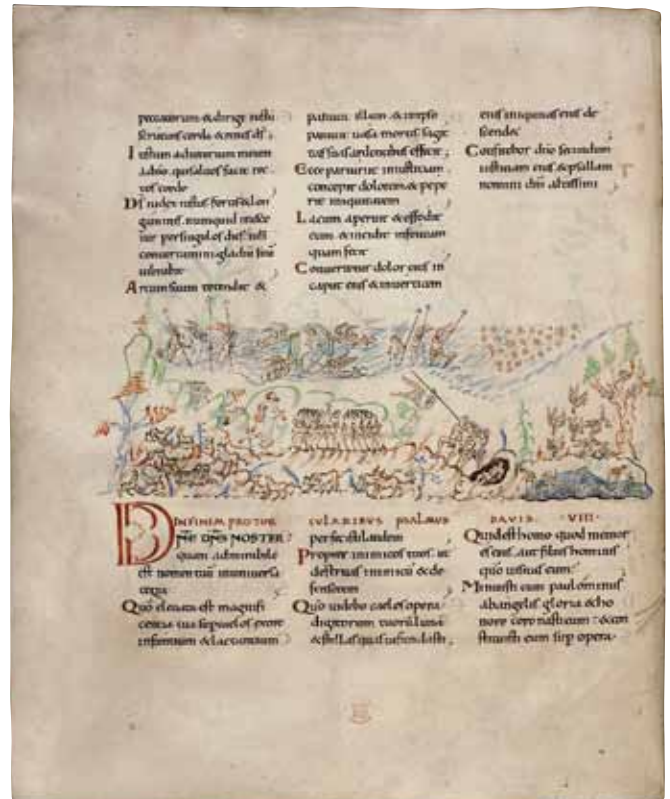 peccatorum & dirige iustū
scrutans corda & renes dſ;
Iustum adiutorium meum
a dño qui saluos facit rec
tos corde
Dſ iudex iustus fortis & lon
ganimiſ. numquid irasce
tur per singulos dies niſi
conuertimini gladiū suū
uibrabit
Arcum suum tetendit &
parauit illum & in ipso
parauit uasa mortis sagit
tas suas ardentibus effecit;
Ecce parturiit iniustitiam
concepit dolorem & pepe
rit iniquitatem
Lacum aperuit & effodit
eum & incidit in foueam
quam fecit
Conuertetur dolor eius in
caput eius & in uerticem
eius iniquitas eius de
scendet
Confitebor dño secundum
iustitiam eius & psallam
nomini dñi altissimi
IN FINEM PRO TOR
DÑE DÑS NOSTER
quam admirabile
est nomen tuū in uniuersa
terra
Quō eleuata est magnifi
centia tua super caelos ex ore
infantium & lactantium
CULARIBUS PSALMUS
perfecisti laudem
Propter inimicos tuos ut
destruas inimicū & de
fensorem
Quō uidebo caelos opera
digitorum tuorū lunā
& stellas quas tu fundasti;
DAVID VIII
Quid est homo quod memor
es eius aut filius hominis
quō uisitas eum:
Minuisti eum paulominus
ab angelis gloria & ho
nore coronasti eum: & con
stituisti eum sup opera